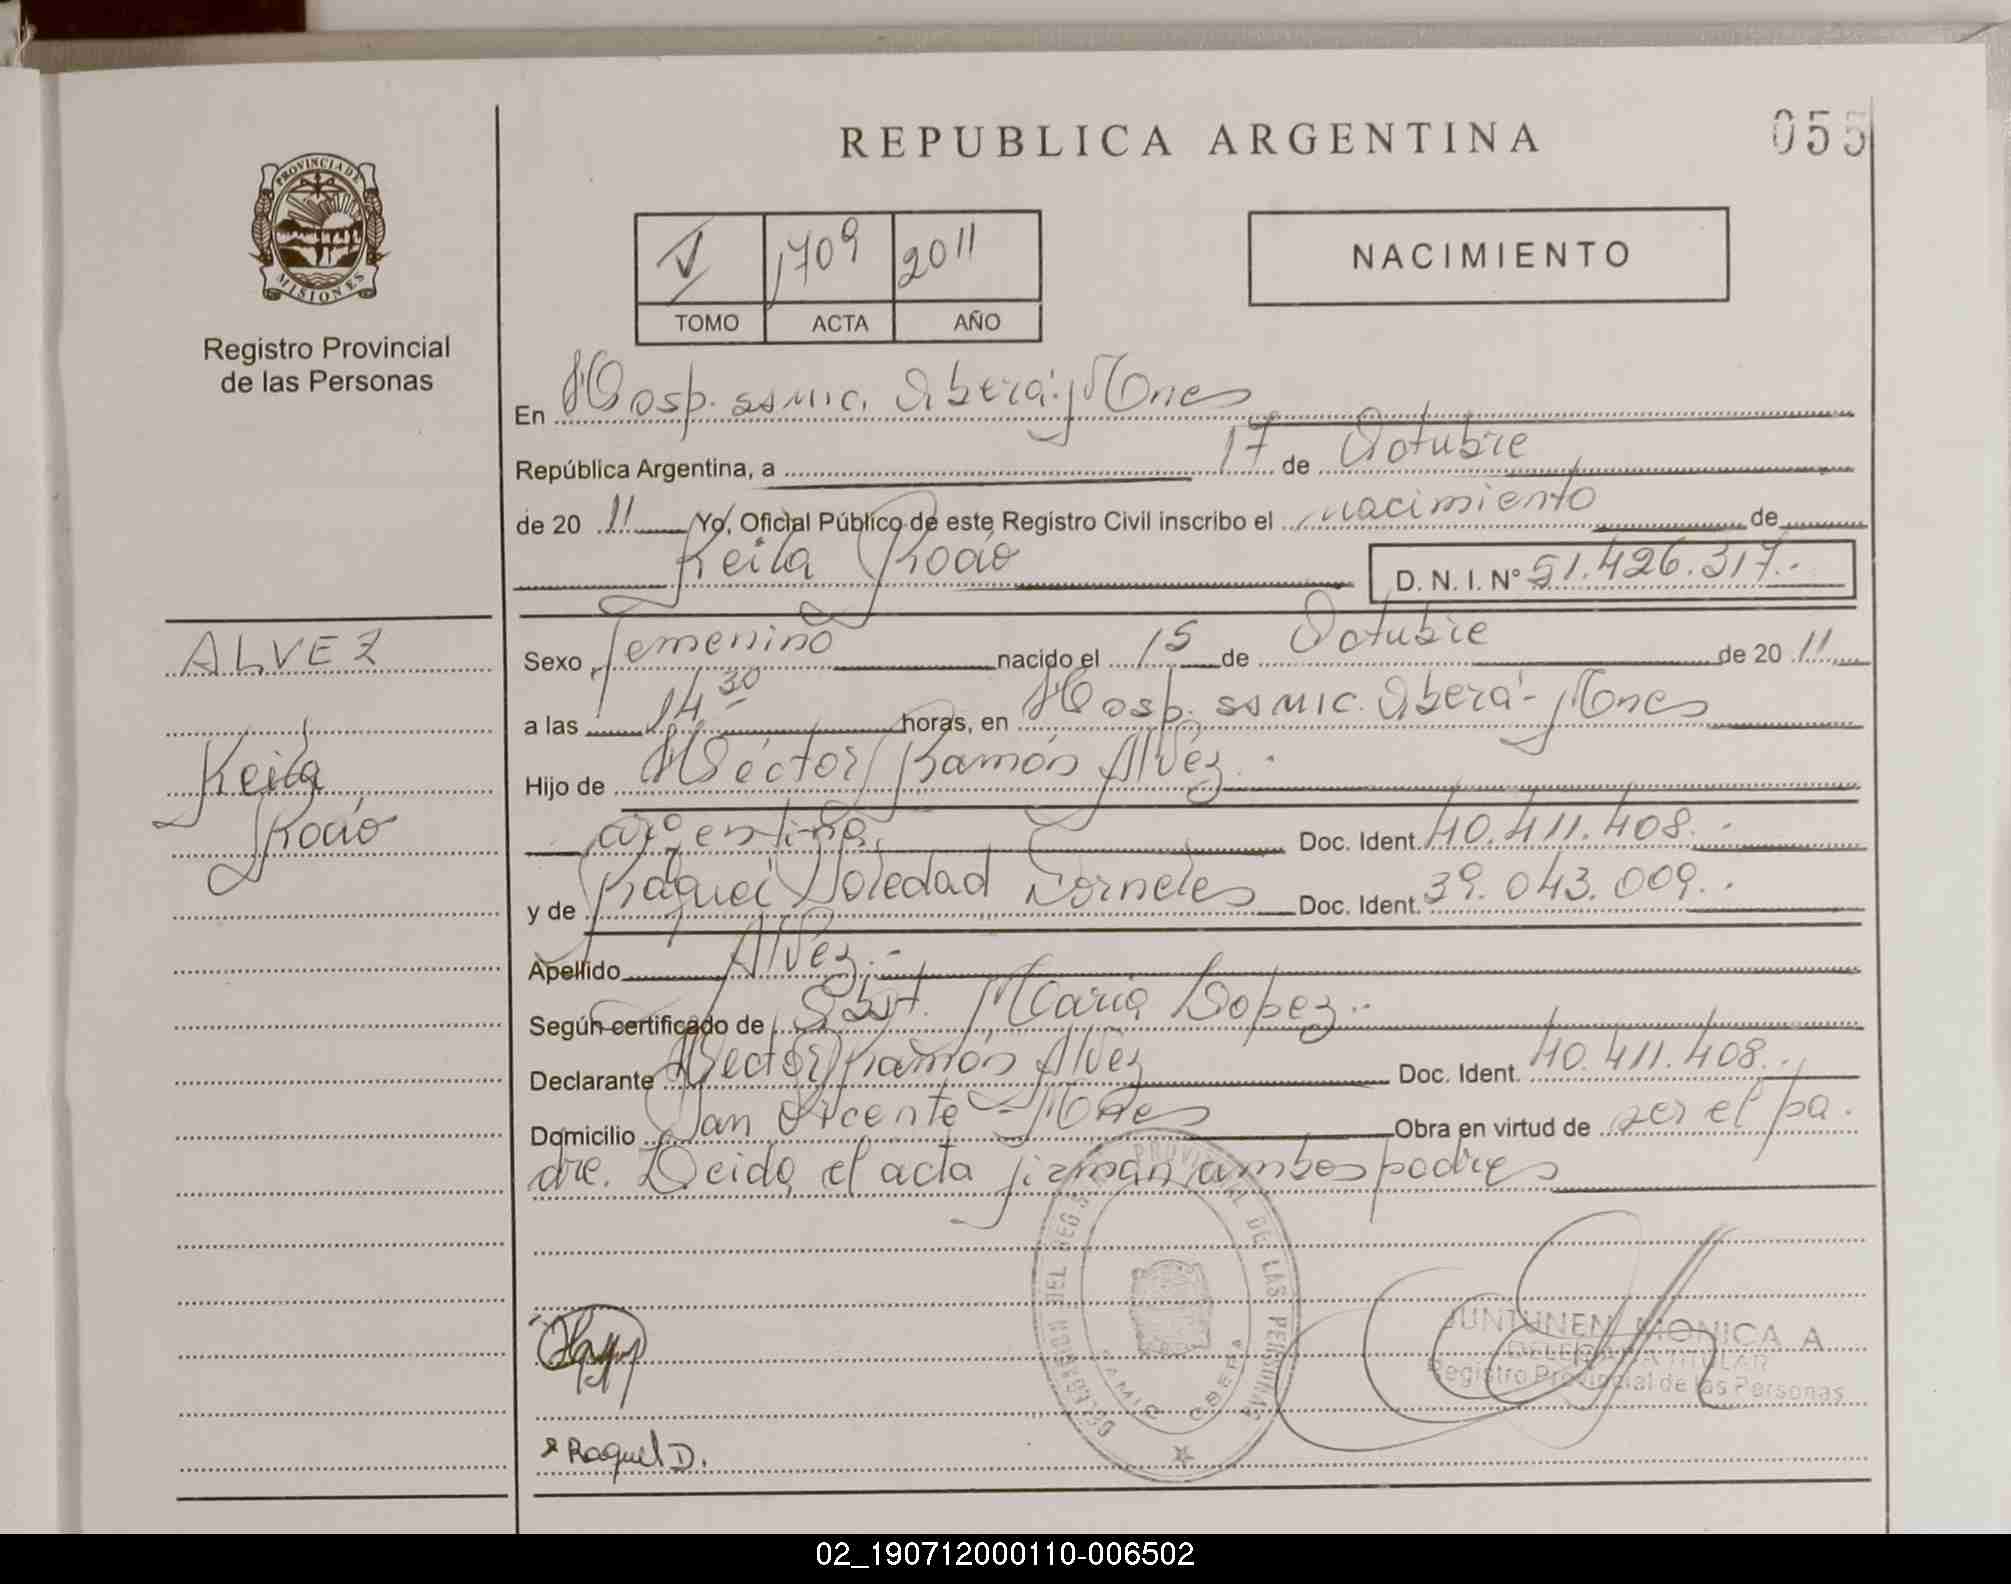 REPUBLICA ARGENTINA
055
PROVINCIA DE
MISIONES
Registro Provincial
de las Personas
1709 2011
TOMO ACTA AÑO
NACIMIENTO
En Hosp. SAMIC. Oberá-Mnes
República Argentina, a 17 de Octubre
de 20 11 Yo, Oficial Público de este Registro Civil inscribo el nacimiento de
Keila Rocío D. N. I. N° 51.426.317.-
ALVEZ
Keila
Rocío
Sexo Femenino nacido el 15 de Octubre de 20 11
a las 14 30 horas, en Hosp. SAMIC. Oberá-Mnes
Hijo de Héctor Ramón Alvez.-
argentina, Doc. Ident. 40.411.408.-
y de Raquel Soledad Dorneles Doc. Ident. 39.043.009.-
Apellido Alvez.-
Según certificado de Obst. María Lopez.-
Declarante Hector Ramón Alvez Doc. Ident. 40.411.408.-
Domicilio San Vicente - Mnes Obra en virtud de ser el pa-
dre. Leida el acta firman ambos padres
DELEGACION DEL REG. PROVINCIAL DE LAS PERSONAS
SAMIC OBERA
JUNTUNEN MONICA A
DELEGADA TITULAR
Registro Provincial de las Personas
Raquel D.
02_190712000110-006502